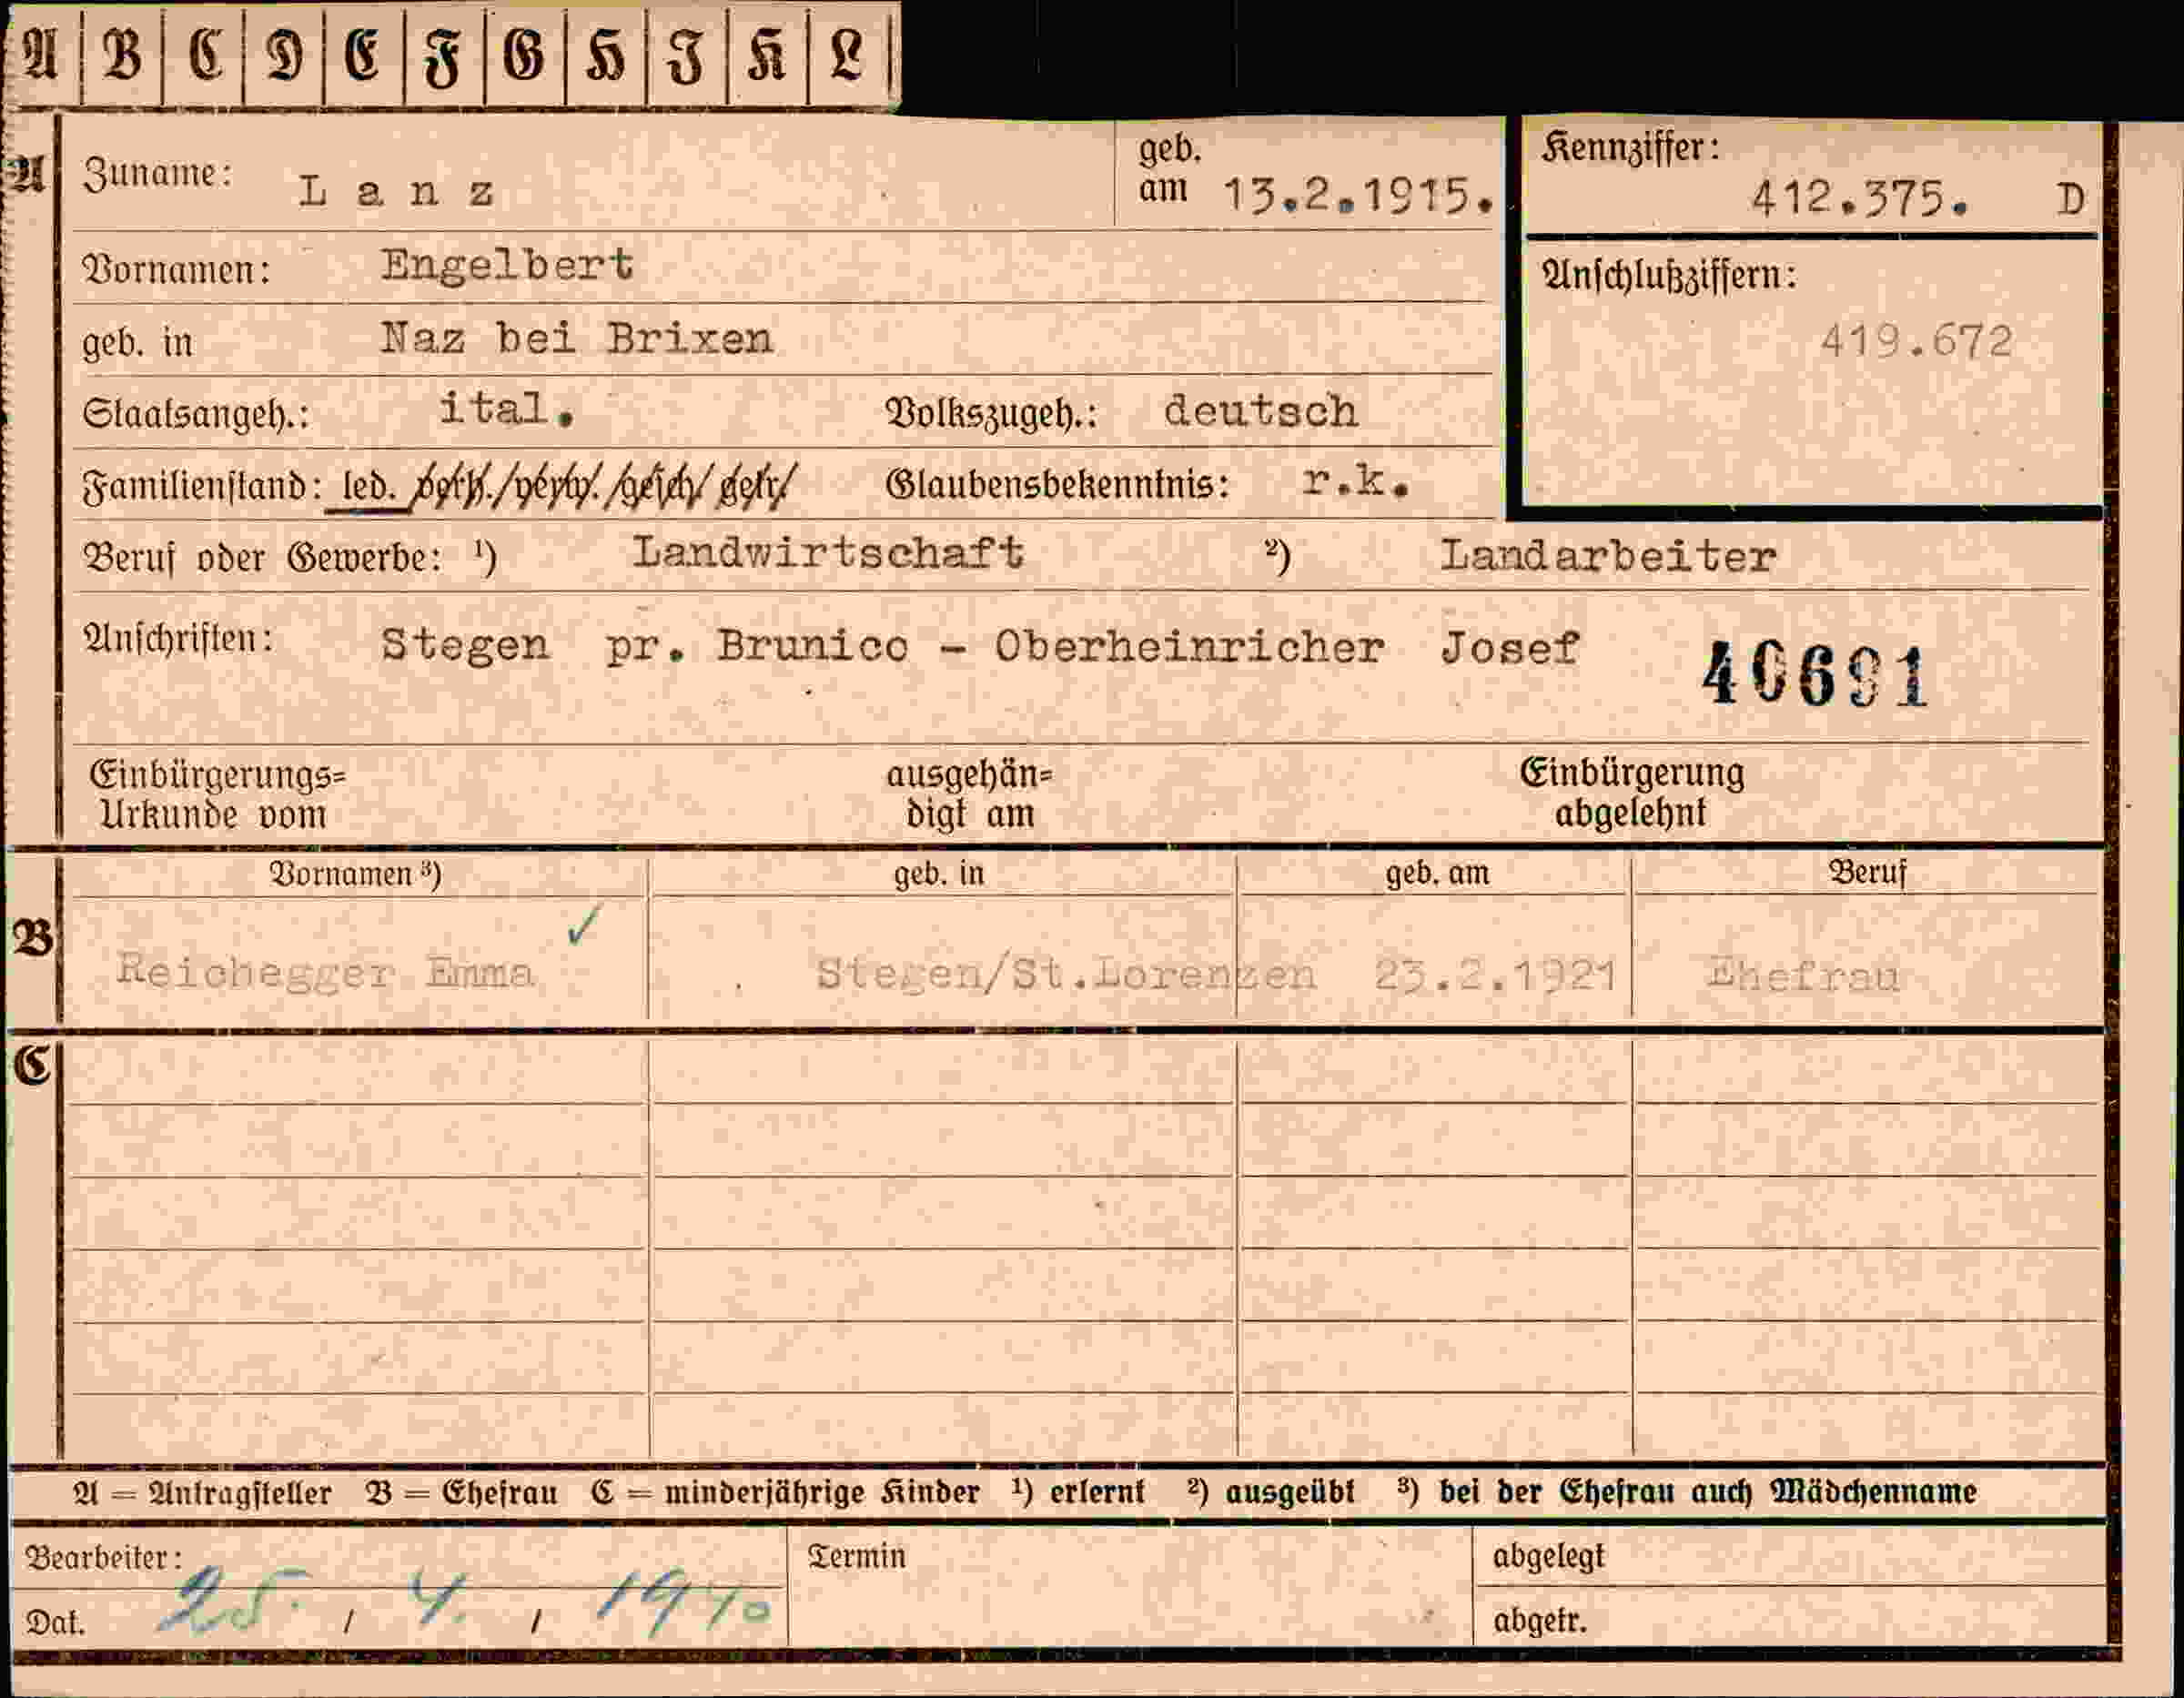 A B C D E F G H I K L
A Zuname: Lanz geb. am 13.2.1915. Kennziffer: 412.375. D
Vornamen: Engelbert Anschlußziffern:
geb. in Naz bei Brixen 419.672
Staatsangeh.: ital. Volkszugeh.: deutsch
Familienstand: led. verh./verw./gesch/ getr/ Glaubensbekenntnis: r.k.
Beruf oder Gewerbe: ¹) Landwirtschaft ²) Landarbeiter
Anschriften: Stegen pr. Brunico - Oberheinricher Josef 40691
Einbürgerungs= ausgehän= Einbürgerung
Urkunde vom digt am abgelehnt
Vornamen ³) geb. in geb. am Beruf
B Reichegger Emma ✓ Stegen/St.Lorenzen 23.2.1921 Ehefrau
C
A = Antragsteller B = Ehefrau C = minderjährige Kinder ¹) erlernt ²) ausgeübt ³) bei der Ehefrau auch Mädchenname
Bearbeiter: Termin abgelegt
Dat. 25. / 4. / 1940 abgetr.